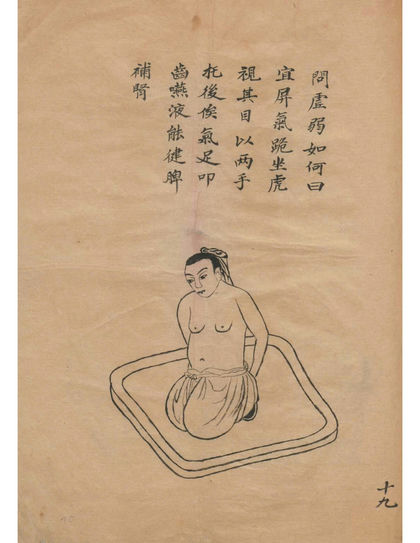 問虛弱如何曰
宜屏氣跪坐虎
視其目以兩手
托後俟氣足叩
齒嚥液能健脾
補腎
十九